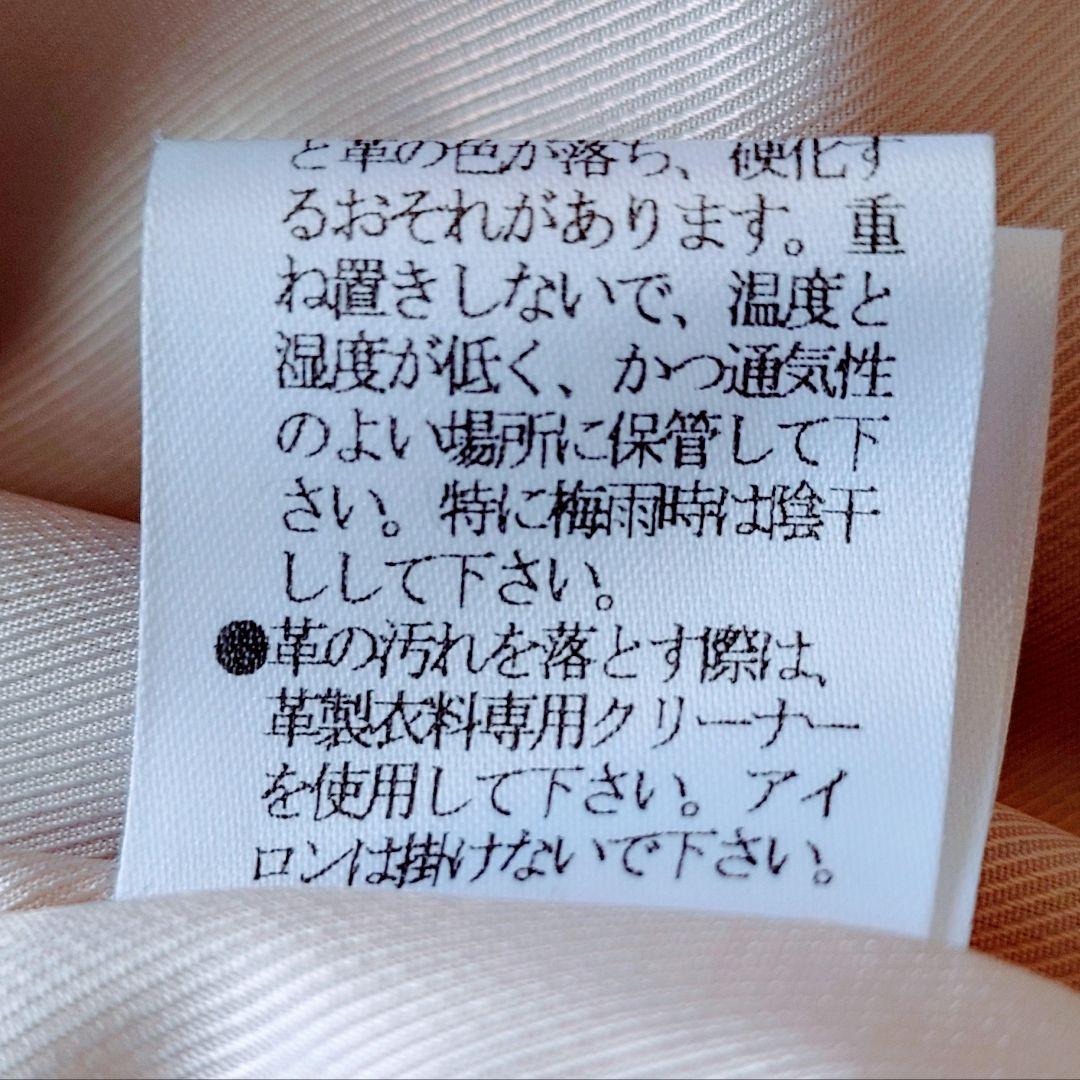 と革の色が落ち、硬化す
るおそれがあります。重
ね置きしないで、温度と
湿度が低く、かつ通気性
のよい場所に保管して下
さい。特に梅雨時は陰干
しして下さい。
●革の汚れを落とす際は、
革製衣料専用クリーナー
を使用して下さい。アイ
ロンは掛けないで下さい。